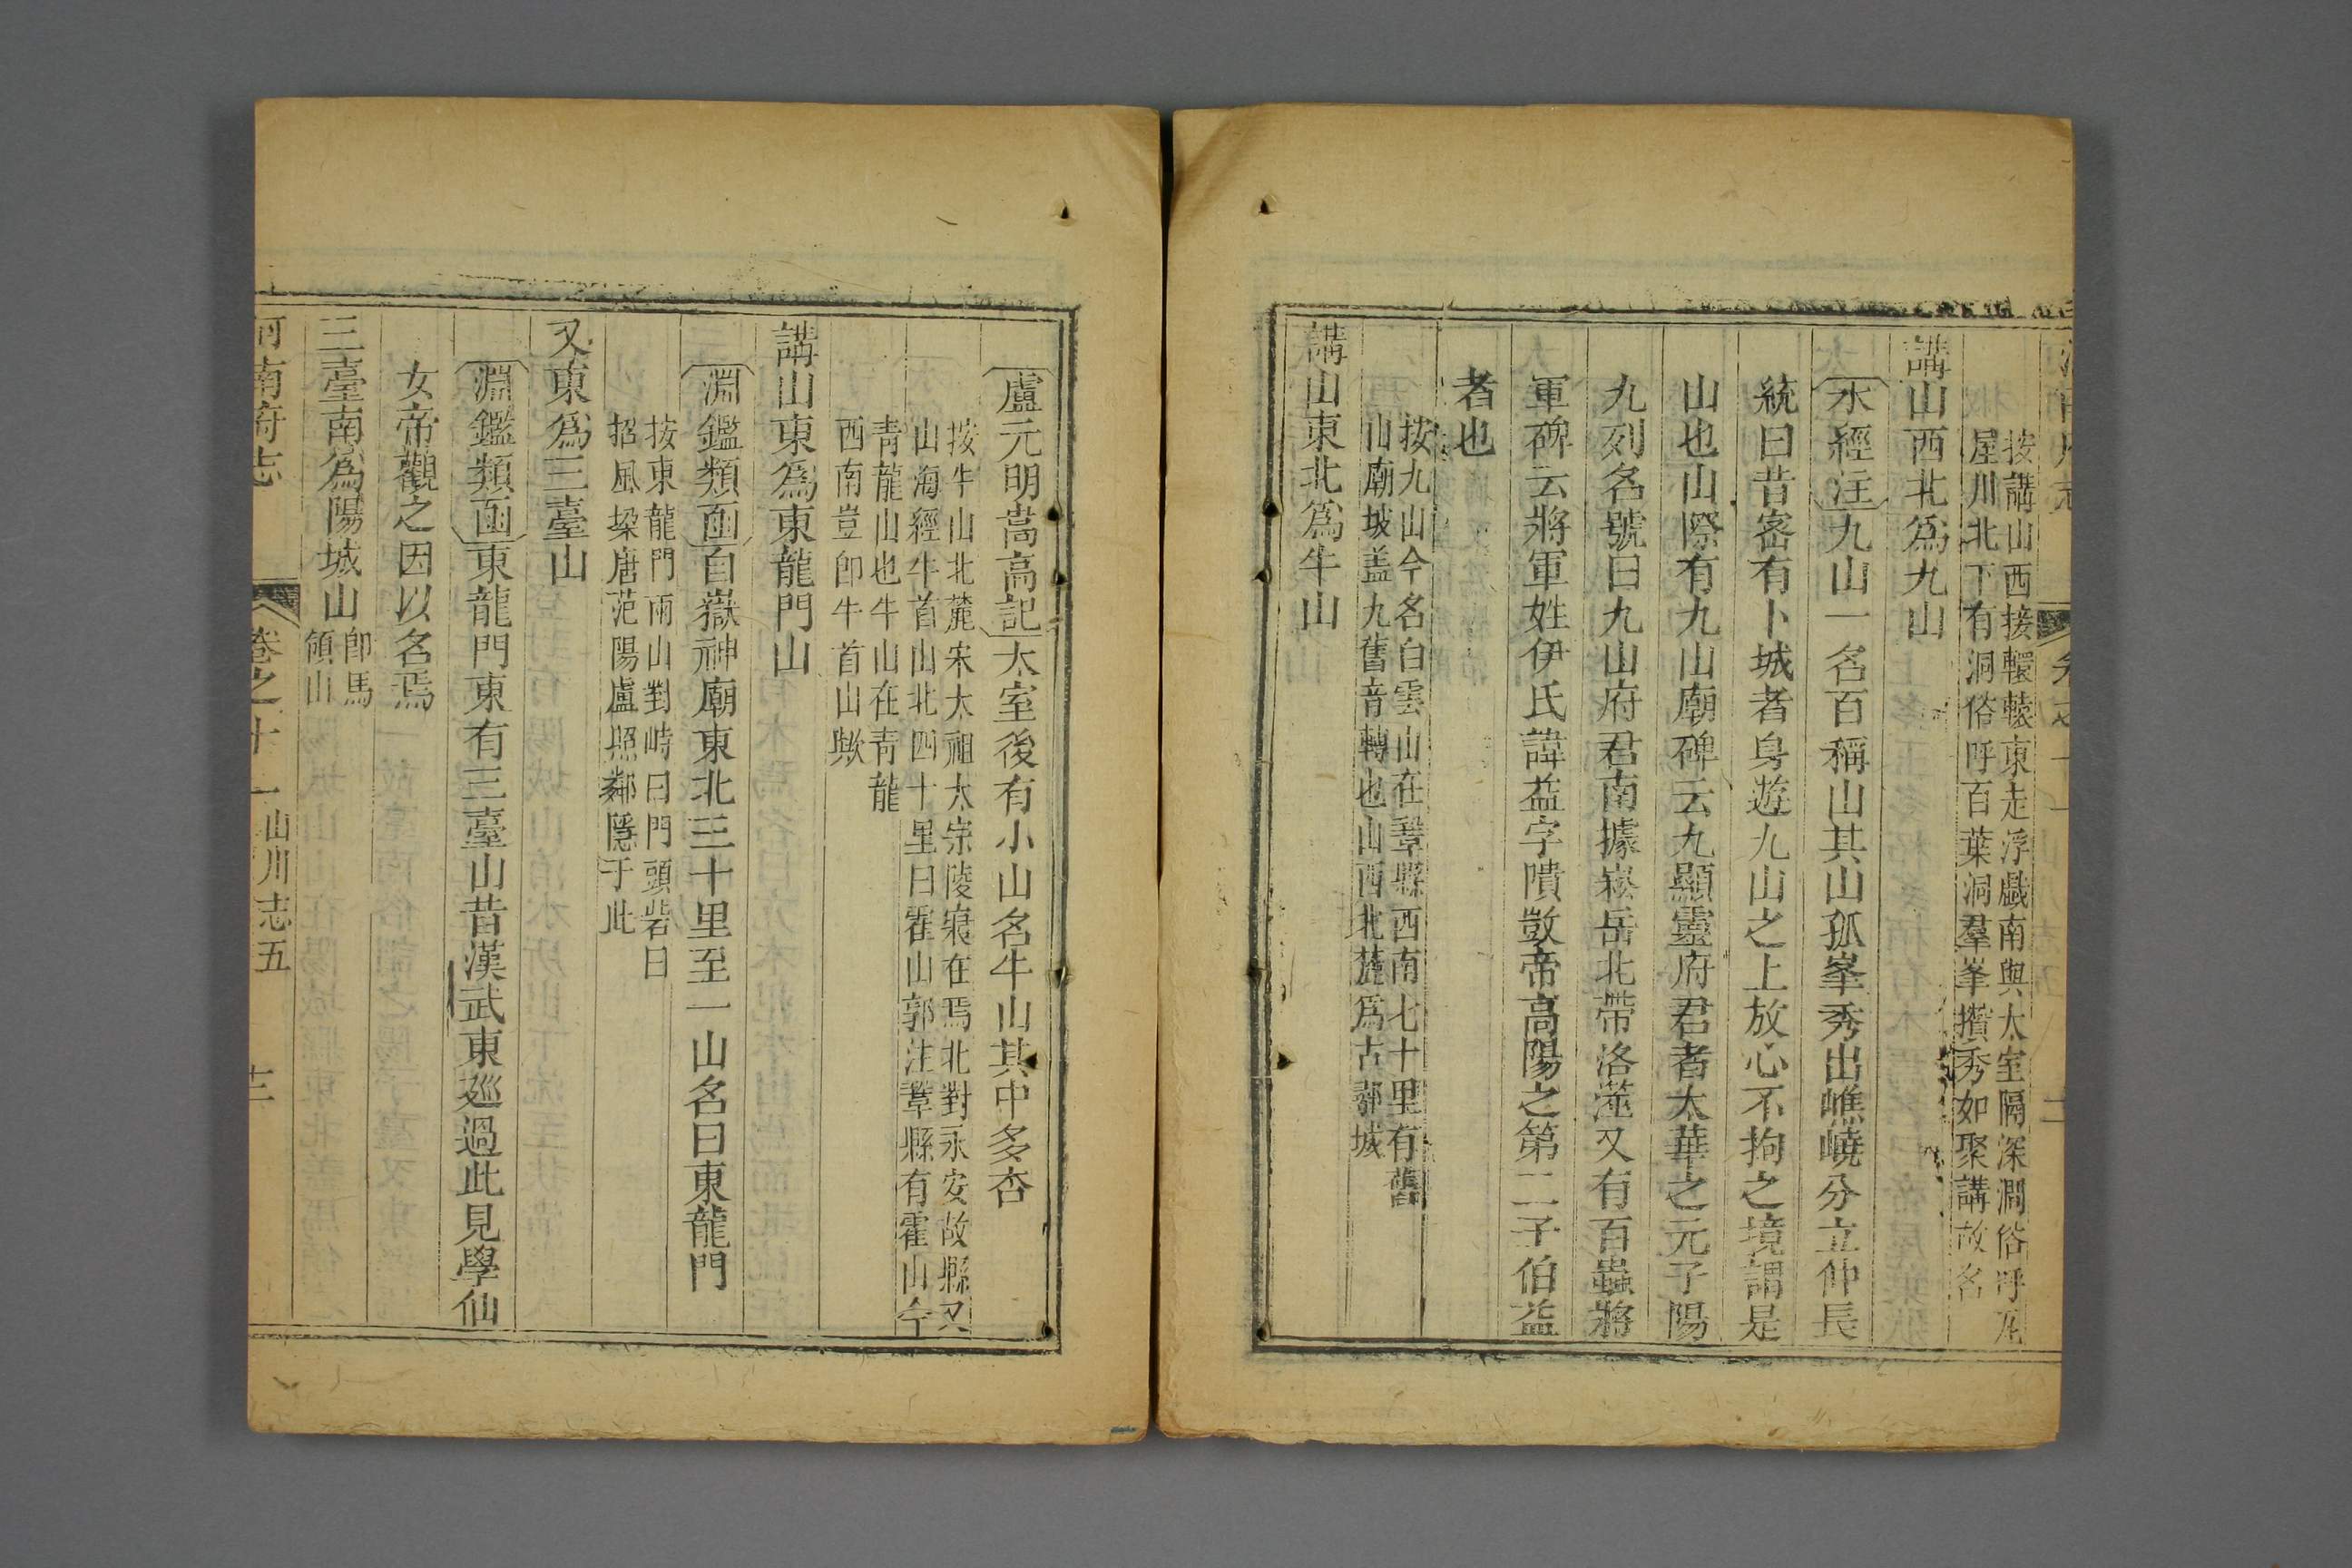 按講山西接轘轅東走浮戱南與太室隔深澗俗呼瓦
屋川北下有洞俗呼百葉洞羣峯攢秀如聚講故名
講山西北爲九山
水經注九山一名百稱山其山孤峯秀出嶕嶢分立仲長
統曰昔密有卜城者身遊九山之上放心不拘之境謂是
山也山際有九山廟碑云九顯靈府君者太華之元子陽
九列名號曰九山府君南據嵩岳北帶洛澨又有百蟲將
軍碑云將軍姓伊氏諱益字隤敳帝高陽之第二子伯益
者也
按九山今名白雲山在鞏縣西南七十里有舊
山廟坡盖九舊音轉也山西北麓爲古鄩城
講山東北爲牛山
盧元明嵩高記太室後有小山名牛山其中多杏
按牛山北麓宋太祖太宗陵寢在焉北對永安故縣又
山海經牛首山北四十里曰霍山郭注鞏縣有霍山今
青龍山也牛山在青龍
西南豈卽牛首山歟
講山東爲東龍門山
淵鑑類函自嶽神廟東北三十里至一山名曰東龍門
按東龍門兩山對峙曰門頭砦曰
招風垜唐范陽盧照鄰隱于此
又東爲三臺山
淵鑑類函東龍門東有三臺山昔漢武東廵過此見學仙
女帝觀之因以名焉
三臺南爲陽城山卽馬
領山
河南府志
卷之十一山川志五
三